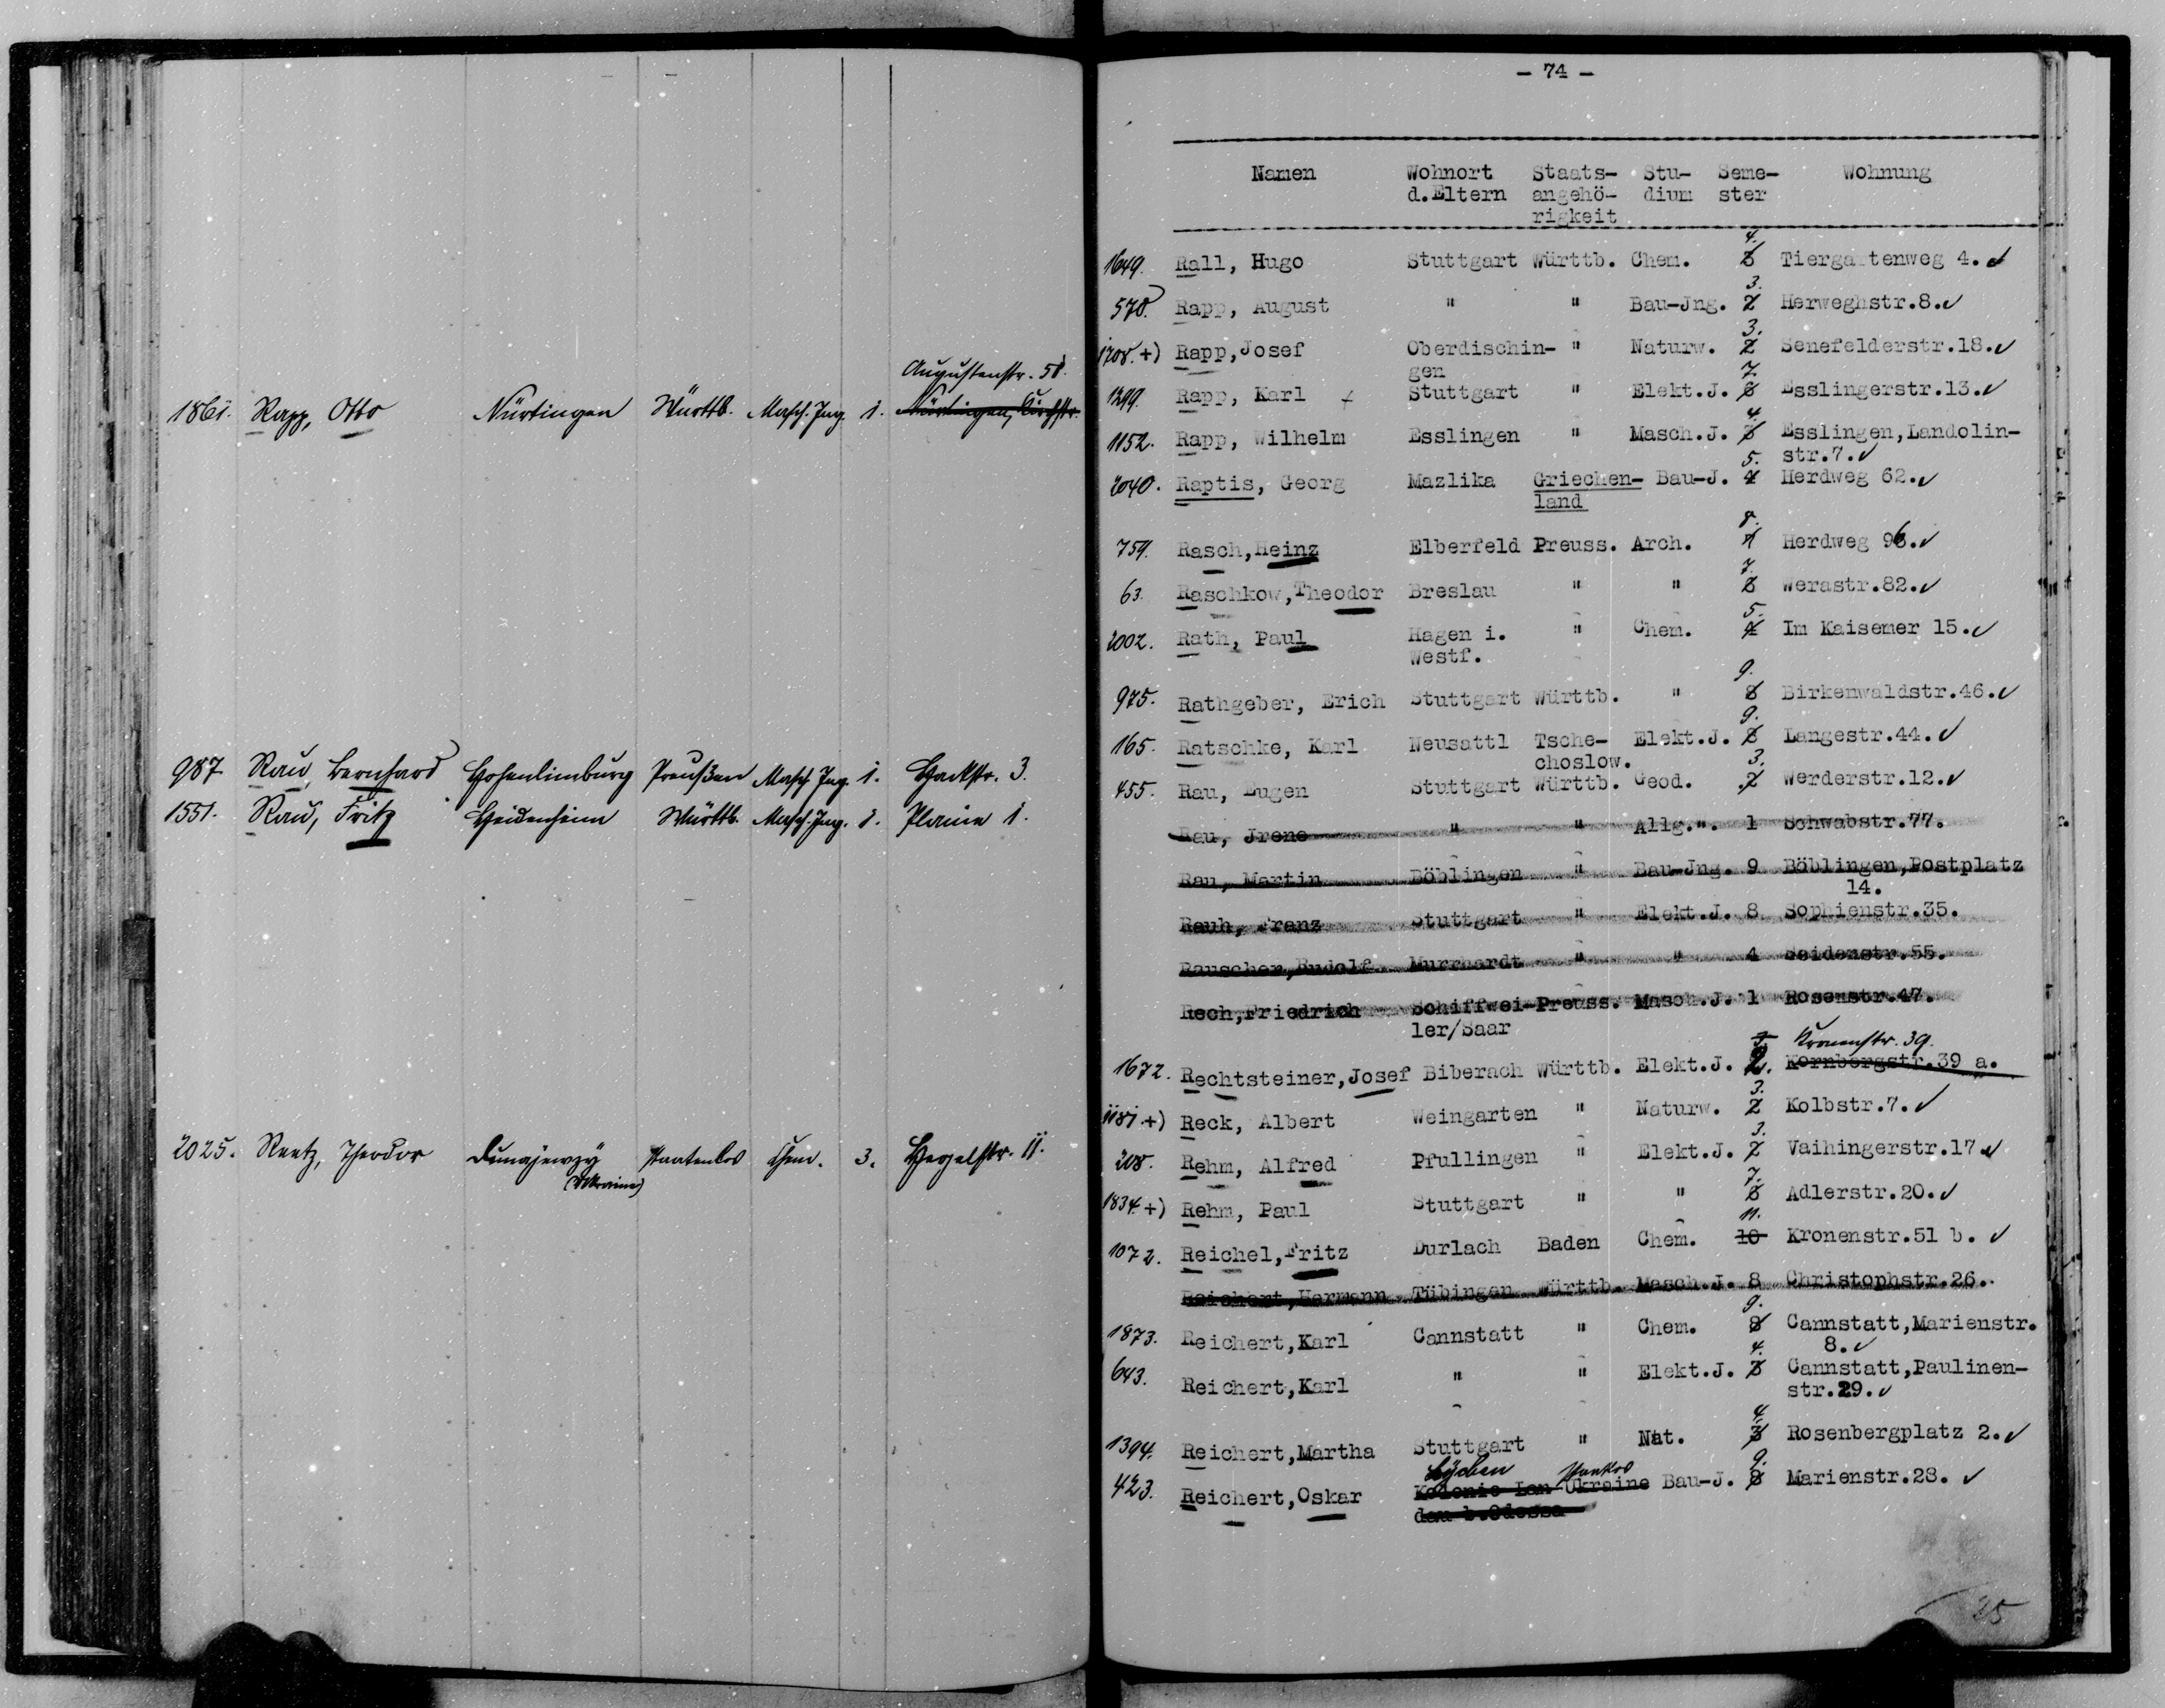 Augustenstr. 58.
1861. Rapp, Otto Nürtingen Württb. Masch. Ing. 1. Nürtingen, Kirchstr.
987 Rau, Bernhard Hohenlimburg Preußen Masch. Ing. 1. Hackstr. 3.
1551. Rau, Fritz Heidenheim Württb. Masch. Ing. 1. Planie 1.
2025. Reetz, Theodor Dunajewzy staatenlos Chem. 3. Hegelstr. 11.
(Ukraine)
- 74 -
Namen Wohnort Staats- Stu- Seme- Wohnung
d.Eltern angehö- dium ster
rigkeit
4.
1649. Rall, Hugo Stuttgart Württb. Chem. Tiergartenweg 4.
3.
578. Rapp, August " " Bau-Jng. 2 Herweghstr.8.
3.
1708. +) Rapp,Josef Oberdischin- " Naturw. 2 Senefelderstr.18.
gen 7.
1299. Rapp, Karl Stuttgart " Elekt.J. Esslingerstr.13.
4.
1152. Rapp, Wilhelm Esslingen " Masch.J. 3 Esslingen,Landolin-
5. str.7.
2040. Raptis, Georg Mazlika Griechen- Bau-J. 4 Herdweg 62.
land
8.
759. Rasch,Heinz Elberfeld Preuss. Arch. Herdweg 96.
7.
63. Raschkow,Theodor Breslau " " Werastr.82.
5.
2002. Rath, Paul Hagen i. " Chem. 4 Im Kaisemer 15.
Westf.
9.
975. Rathgeber, Erich Stuttgart Württb. " 8 Birkenwaldstr.46.
9.
165. Ratschke, Karl Neusattl Tsche- Elekt.J. 8 Langestr.44.
choslow. 3.
455. Rau, Eugen Stuttgart Württb. Geod. 2 Werderstr.12.
Rau, Jrene " " Allg.". 1 Schwabstr.77.
Rau, Martin Böblingen " Bau-Jng. 9 Böblingen,Postplatz
14.
Rauh, Franz Stuttgart " Elekt.J. 8 Sophienstr.35.
Rauscher,Rudolf Murrhardt " " 4 Seidenstr.55.
Rech,Friedrich Schiffwei- Preuss. Masch.J. 1 Rosenstr.47.
ler/Saar
3. Kronenstr. 39.
1672. Rechtsteiner,Josef Biberach Württb. Elekt.J. 2. Kornbergstr.39 a.
3.
1181. +) Reck, Albert Weingarten " Naturw. 2 Kolbstr.7.
3.
208. Rehm, Alfred Pfullingen " Elekt.J. 2 Vaihingerstr.17
7.
1834. +) Rehm, Paul Stuttgart " " Adlerstr.20.
11.
1072. Reichel,Fritz Durlach Baden Chem. 10 Kronenstr.51 b.
Reichert,Hermann Tübingen Württb. Masch.J. 8 Christophstr.26.
9.
1873. Reichert,Karl Cannstatt " Chem. 8 Cannstatt,Marienstr.
4. 8.
643. Reichert,Karl " " Elekt.J. 3 Cannstatt,Paulinen-
str.29.
4.
1394. Reichert,Martha Stuttgart " Nat. 3 Rosenbergplatz 2.
Lychen 9.
423. Reichert,Oskar Kolonie Lan- Ukraine Bau-J. 8 Marienstr.28.
dau b.Odessa
25